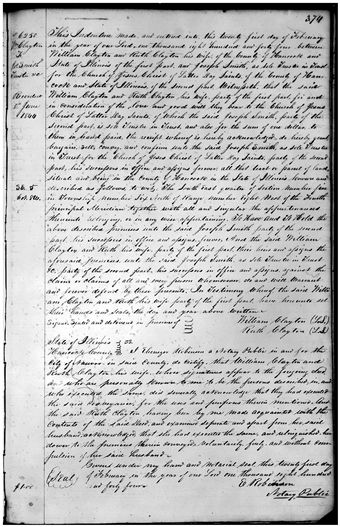 374
No. 6257
W. Clayton
To
J. Smith
Trustee &c.
Recorded
5th June
1844
This Indenture made and entered into this twenty first day of February
in the year of our Lord one thousand eight hundred and forty four between
William Clayton and Ruth Clayton his wife of the County of Hancock and
State of Illinois of the first part, and Joseph Smith, as sole Trustee in Trust
for the Church of Jesus Christ of Latter Day Saints of the County of Han-
cock and State of Illinois of the second part Witnesseth that the said
William Clayton and Ruth Clayton his wife, party of the first part, for and
in consideration of the love and good will they have to the Church of Jesus
Christ of Latter Day Saints, of which the said Joseph Smith, party of the
second part, is sole Trustee in Trust, and also for the sum of one dollar to
them in hand paid, the receipt whereof is hereby acknowledged, do hereby grant,
bargain, sell, convey, and confirm unto the said Joseph Smith, as sole Trustee
in Trust for the Church of Jesus Christ of Latter Day Saints, party of the second
part, his successors in office and assigns forever, all that tract or parcel of land,
situate and being in the County of Hancock in the State of Illinois, known and
described as follows to wit, The South east quarter of Section Number five
in Township Number Six North of Range number Eight West of the Fourth
principal Meridian Together with all and singular the appurtenances
thereunto belonging, or in any wise appertaining To Have and To Hold the
above described premises unto the said Joseph Smith party of the second
part, his successors in office and assigns, forever, And the said William
Clayton and Ruth his wife, party of the first part
aforesaid premises, unto the said Joseph Smith as sole Trustee in Trust
&c. party of the second part, his successors in office and assigns against the
claim or claims of all and every person whomsoever, do and will warrant
and forever defend by these presents, In testimony whereof the said Willi-
am Clayton and Ruth his wife party of the first part have hereunto set
their hands and seals, the day and year above written
Signed Sealed and delivered in presence of
William Clayton (Seal)
Ruth Clayton (Seal)
State of Illinois
Hancock County ss
I Ebenezer Robinson a Notary Public in and for the
City of Nauvoo in said County do certify, that William Clayton and
Ruth Clayton his wife, whose signatures appear to the foregoing deed
who are personally known to me to be the persons described in, and
who executed the same, did severally acknowledge that they had executed
the said conveyance for the uses and purposes therein mentioned, And
the said Ruth Clayton having been by me made acquainted with the
contents of the said deed, and examined separate and apart from her said
husband, acknowledged that she had executed the same, and relinquished her
dower to the premises therein conveyed, voluntarily, freely, and without com-
pulsion of her said husband.
Given under my hand and Notarial seal this twenty first day
(Seal) of February in the year of our Lord one thousand eight hundred
and forty four.
E Robinson
Notary Public